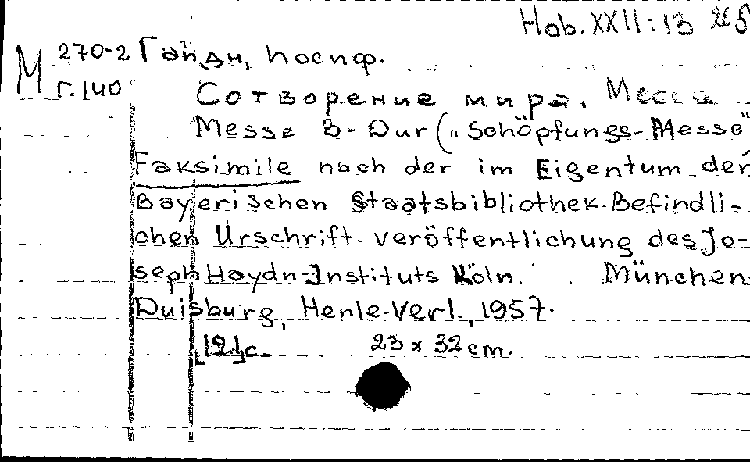 Hob. XXII:13
М 270-2 Гайдн, Йосиф.
Г.140
Сотворение мира. Месса
Messe B-Dur („Schöpfungs-Messe"
Faksimile nach der im Eigentum der
Bayerischen Staatsbibliothek Befindli-
chen Urschrift veröffentlichung des Jo-
seph Haydn-Instituts Köln. München-
Duisburg, Henle-Verl., 1957.
[12]с. 23 x 32 cm.